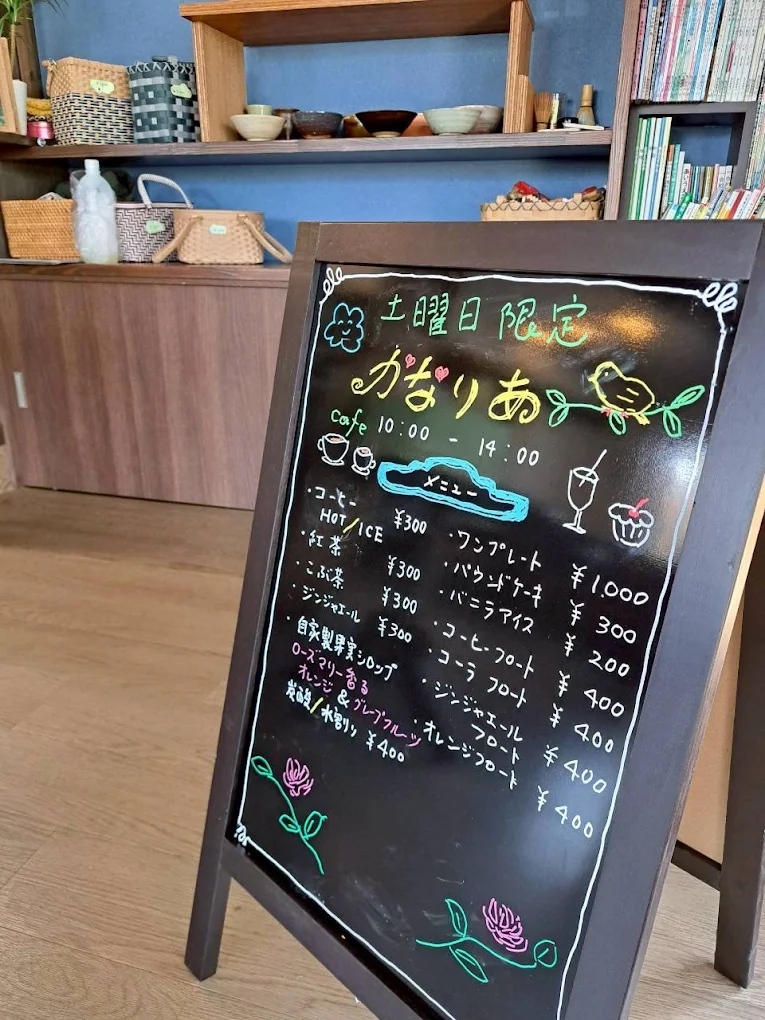 土曜日限定
かなりあ
cafe 10:00 - 14:00
メニュー
・コーヒー
HOT/ICE ¥300
・紅茶 ¥300
・こぶ茶 ¥300
・ジンジャエール ¥300
・自家製果実シロップ
ローズマリー香る
オレンジ&グレープフルーツ
炭酸/水割り ¥400
・ワンプレート ¥1.000
・パウンドケーキ ¥300
・バニラアイス ¥200
・コーヒーフロート ¥400
・コーラフロート ¥400
・ジンジャエール
フロート ¥400
・オレンジフロート ¥400